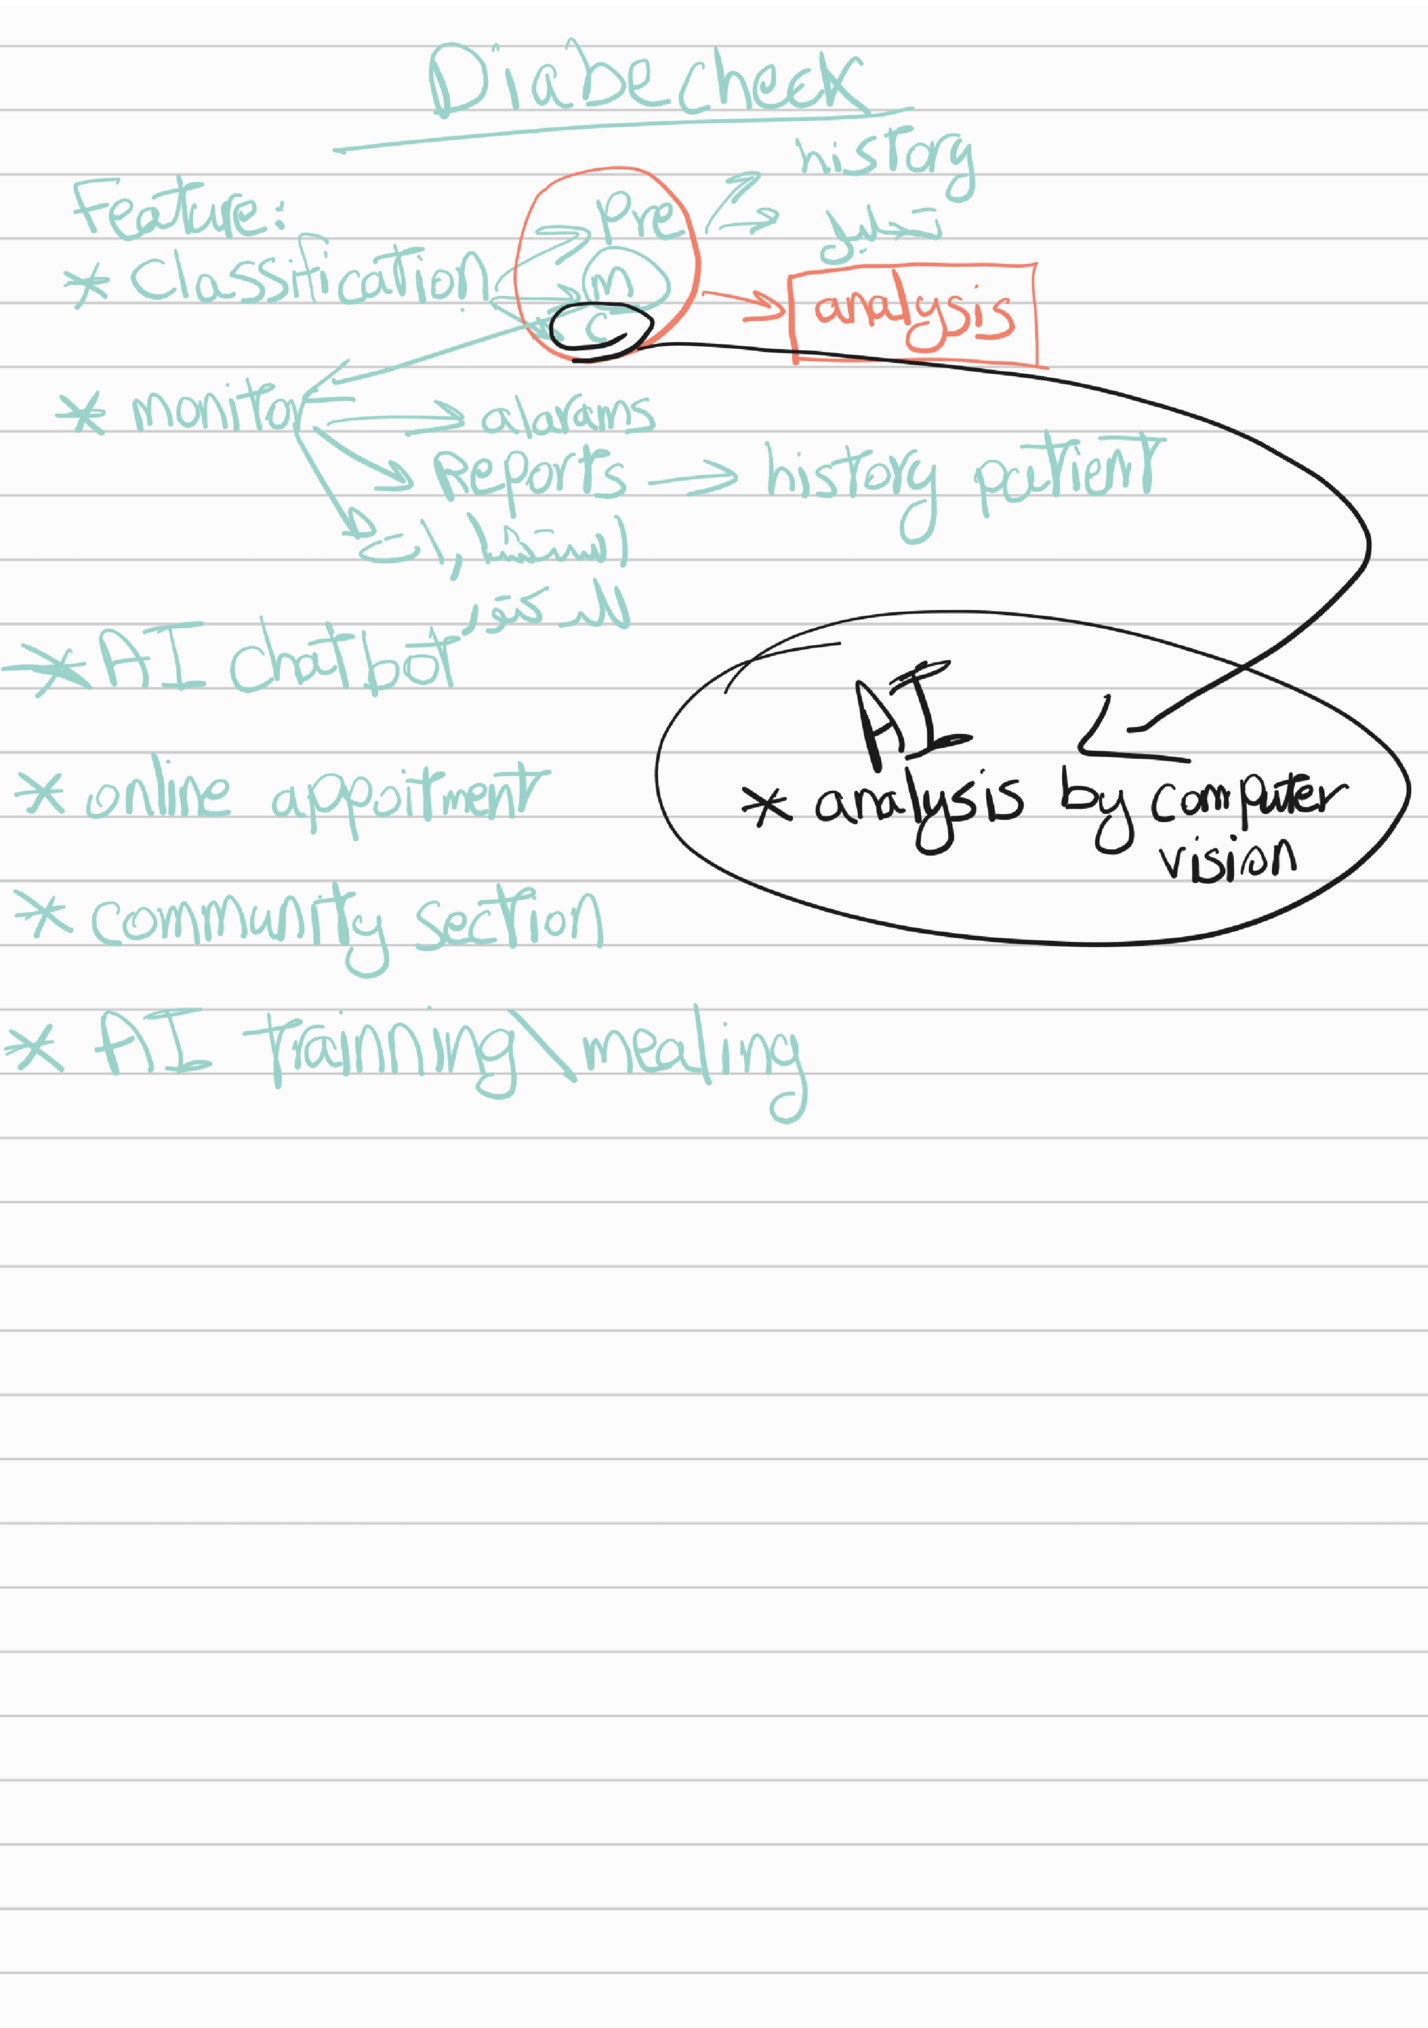 Diabecheck
history
Feature: Pre تحاليل
* Classification m
analysis
c
* monitor alarams
Reports history patient
الاستشارات
للدكتور
* AI chatbot
AI
* online appoitment
* analysis by computer
vision
* community section
* AI trainning\mealing